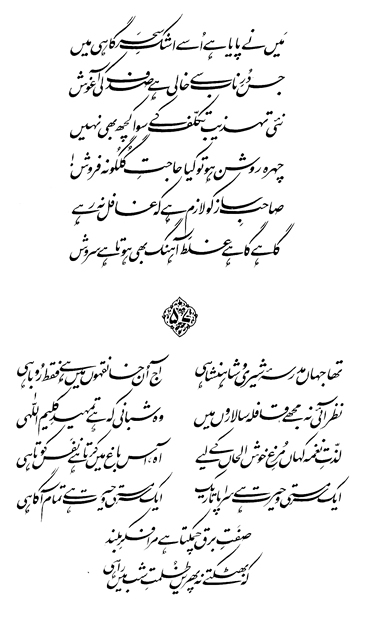 مَیں نے پایا ہے اُسے اشکِ سحر گاہی میں
جس دُرِ ناب سے خالی ہے صدف کی آغوش
نئی تہذیب تکلّف کے سوا کچھ بھی نہیں
چہرہ روشن ہو تو کیا حاجتِ گُلگونہ فروش!
صاحبِ ساز کو لازم ہے کہ غافل نہ رہے
گاہے گاہے غلط آہنگ بھی ہوتا ہے سروش
۵۷
تھا جہاں مدرسۂ شیری و شاہنشاہی
آج اُن خانقہوں میں ہے فقط رُوباہی
نظر آئی نہ مجھے قافلہ سالاروں میں
وہ شبانی کہ ہے تمہیدِ کلیم اللّٰہی
لذّتِ نغمہ کہاں مُرغِ خوش الحاں کے لیے
آہ، اس باغ میں کرتا ہے نفَس کوتاہی
ایک سرمستی و حیرت ہے سراپا تاریک
ایک سرمستی و حیرت ہے تمام آگاہی
صفَتِ برق چمکتا ہے مرا فکرِ بلند
کہ بھٹکتے نہ پھریں ظُلمتِ شب میں راہی